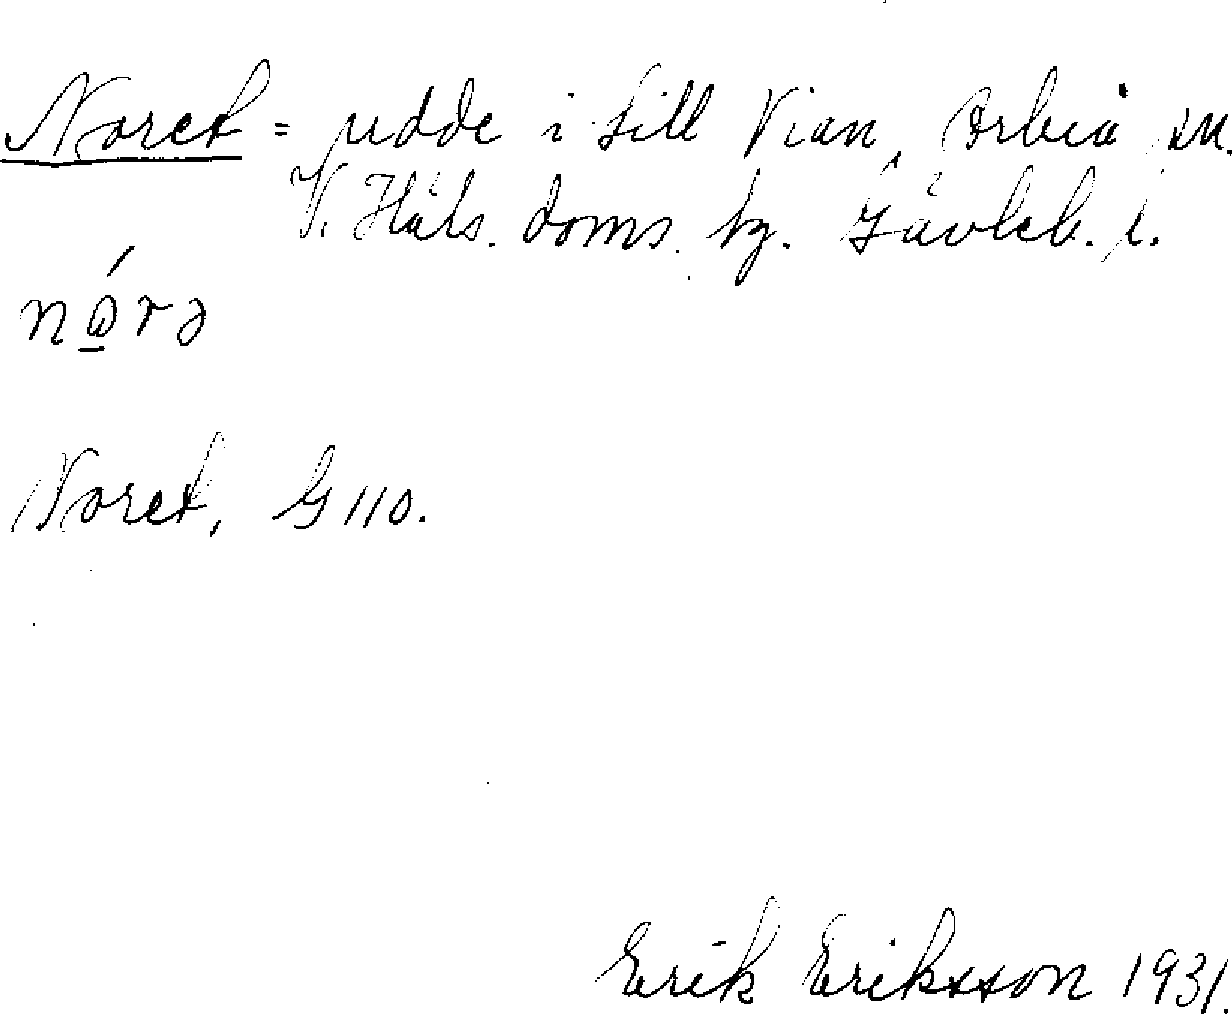 Noret = udde i Lill Vian, Arbrå sn.
V. Häls. doms. hg. Gävleb. l.
nǿ̱rə
Noret, G 110.
Erik Eriksson 1931.